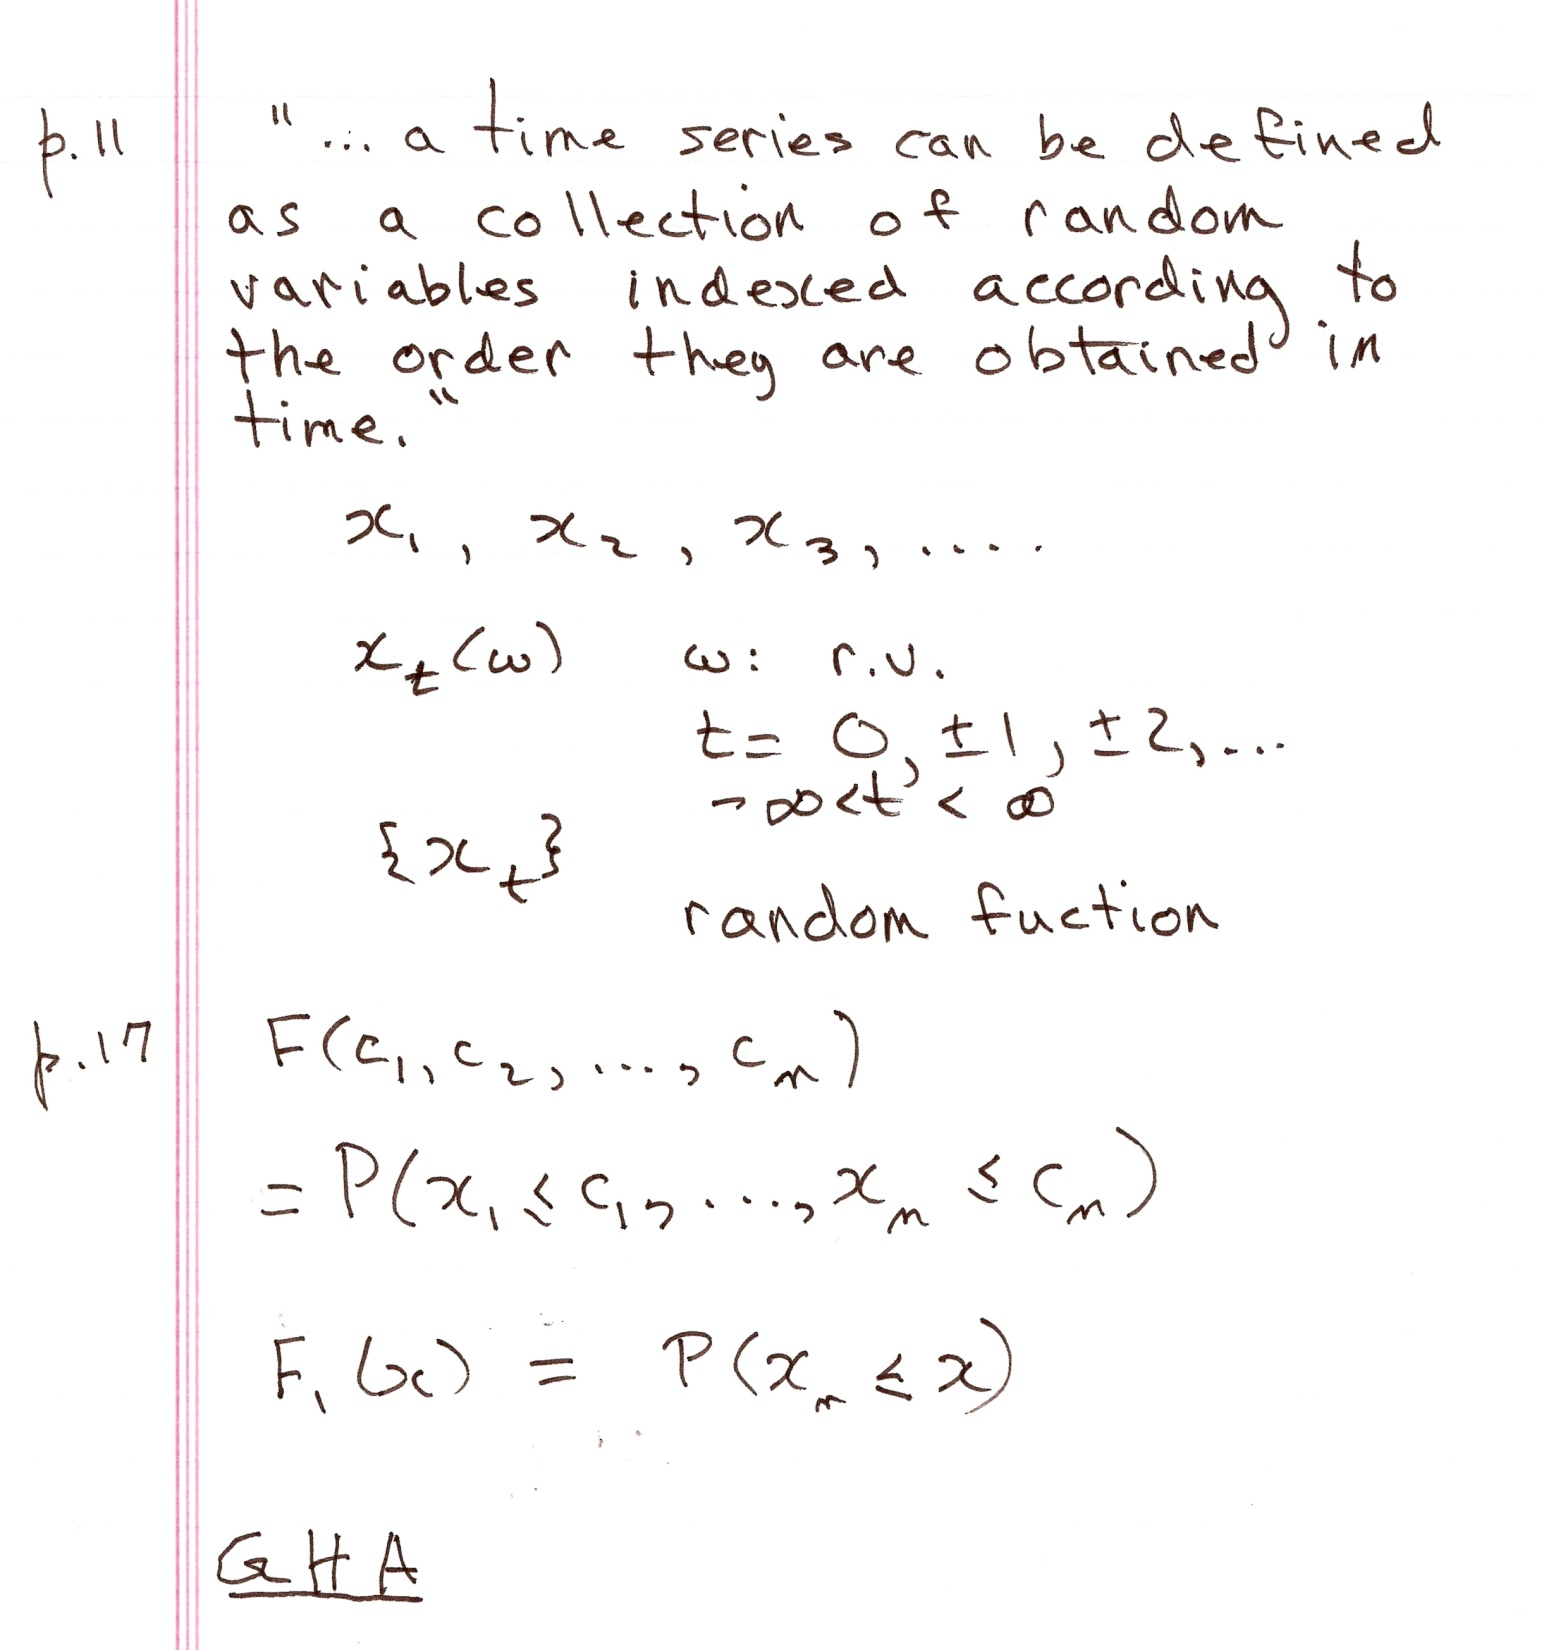 p.11 "... a time series can be defined
as a collection of random
variables indexed according to
the order they are obtained in
time."
x₁, x₂, x₃, ....
xₜ(ω) ω: r.v.
t = 0, ±1, ±2, ...
-∞ < t < ∞
{xₜ}
random fuction
p.17 F(c₁, c₂, ..., cₙ)
= P(x₁ ≤ c₁, ...., xₙ ≤ cₙ)
F₁(x) = P(xₙ ≤ x)
GHA